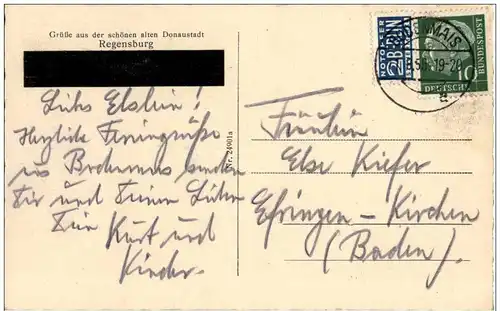 Grüße aus der schönen alten Donaustadt
Regensburg
Liebs Elslein!
Herzliche Feriengrüße
aus Bodenmais senden
Dir und Deinen Lieben
Dein Kurt und
Kinder.
Nr. 24901a
NOTOPFER
2 BERLIN
STEUERMARKE
MAIS
-19-20
a
10
DEUTSCHE
BUNDESPOST
Fräulein
Else Kiefer
Efringen - Kirchen
(Baden).